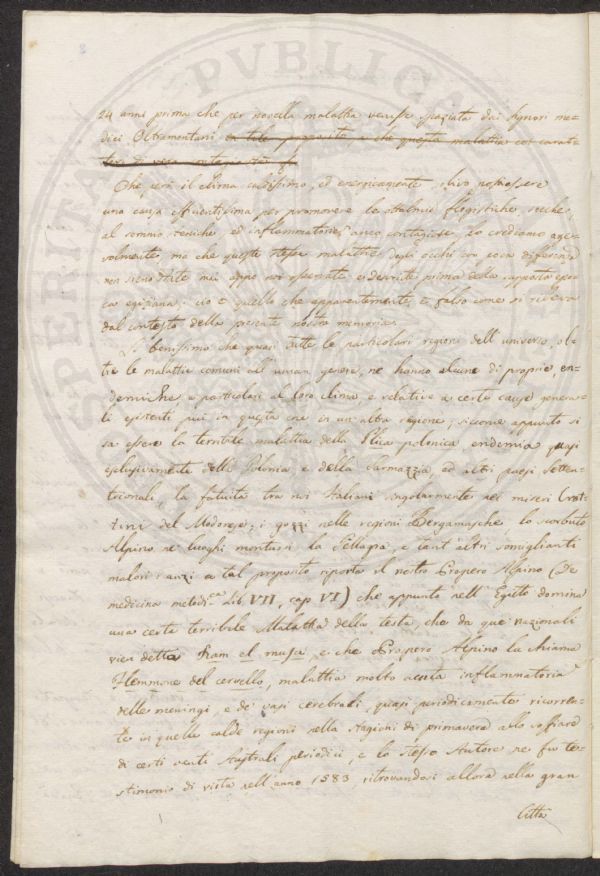 24 anni prima che per novella malattia venisse spacciata dai Signori me-
dici Oltramontani in tale proposito che questa malattia
Che, ed esotericamente estivo possa essere
una causa efficientissima per promuovere le ottalmie flogistiche, secche,
al sommo veniche ed infiammatorie, anco contagiose, lo crediamo age-
volmente, ma che queste stesse malattie degli occhi con poca differenza
non sieno state mai appo noi osservate e descritte prima della rapporta epo-
ca egiziana; ciò è quello che apparentemente è falso come si rileva
dal contesto della presente nostra memoria.
So benissimo che quasi tutte le particolari regioni dell'universo, ol-
tre le malattie comuni all'uman genere, ne hanno alcune di proprie, en-
demiche e particolari al loro clima e relative a certe cause genera-
li esistenti più in questa che in un'altra regione; siccome appunto si
sa essere la terribile malattia della Plica polonica endemia quasi
esclusivamente della Polonia e della Sarmazzia, ed altri paesi setten-
trionali, la fatuità tra noi Italiani singolarmente nei miseri
del Modonese; i gozzi nelle regioni Bergamasche, lo scorbuto
Alpino ne' luoghi montuosi la Pellagra, e tant'altri somiglianti
malori: anzi a tal proposito riporta il nostro Prospero Alpino (De
medicina metodica Lib VII, cap VI) che appunto nell'Egitto domina
una certa terribile Malattia della testa, che da que' nazionali
vien detta Dem el muja, e che Prospero Alpino la chiama
Flemmone del cervello, malattia molto acuta infiammatoria
delle meningi, e de' vasi cerebrali, quasi periodicamente ricorren-
te in quelle calde regioni nella stagioni di primavera allo soffiare
di certi venti Australi periodici, e lo stesso Autore ne fu te-
stimonio di vista nell'anno 1583, ritrovandosi allora nella gran
Città